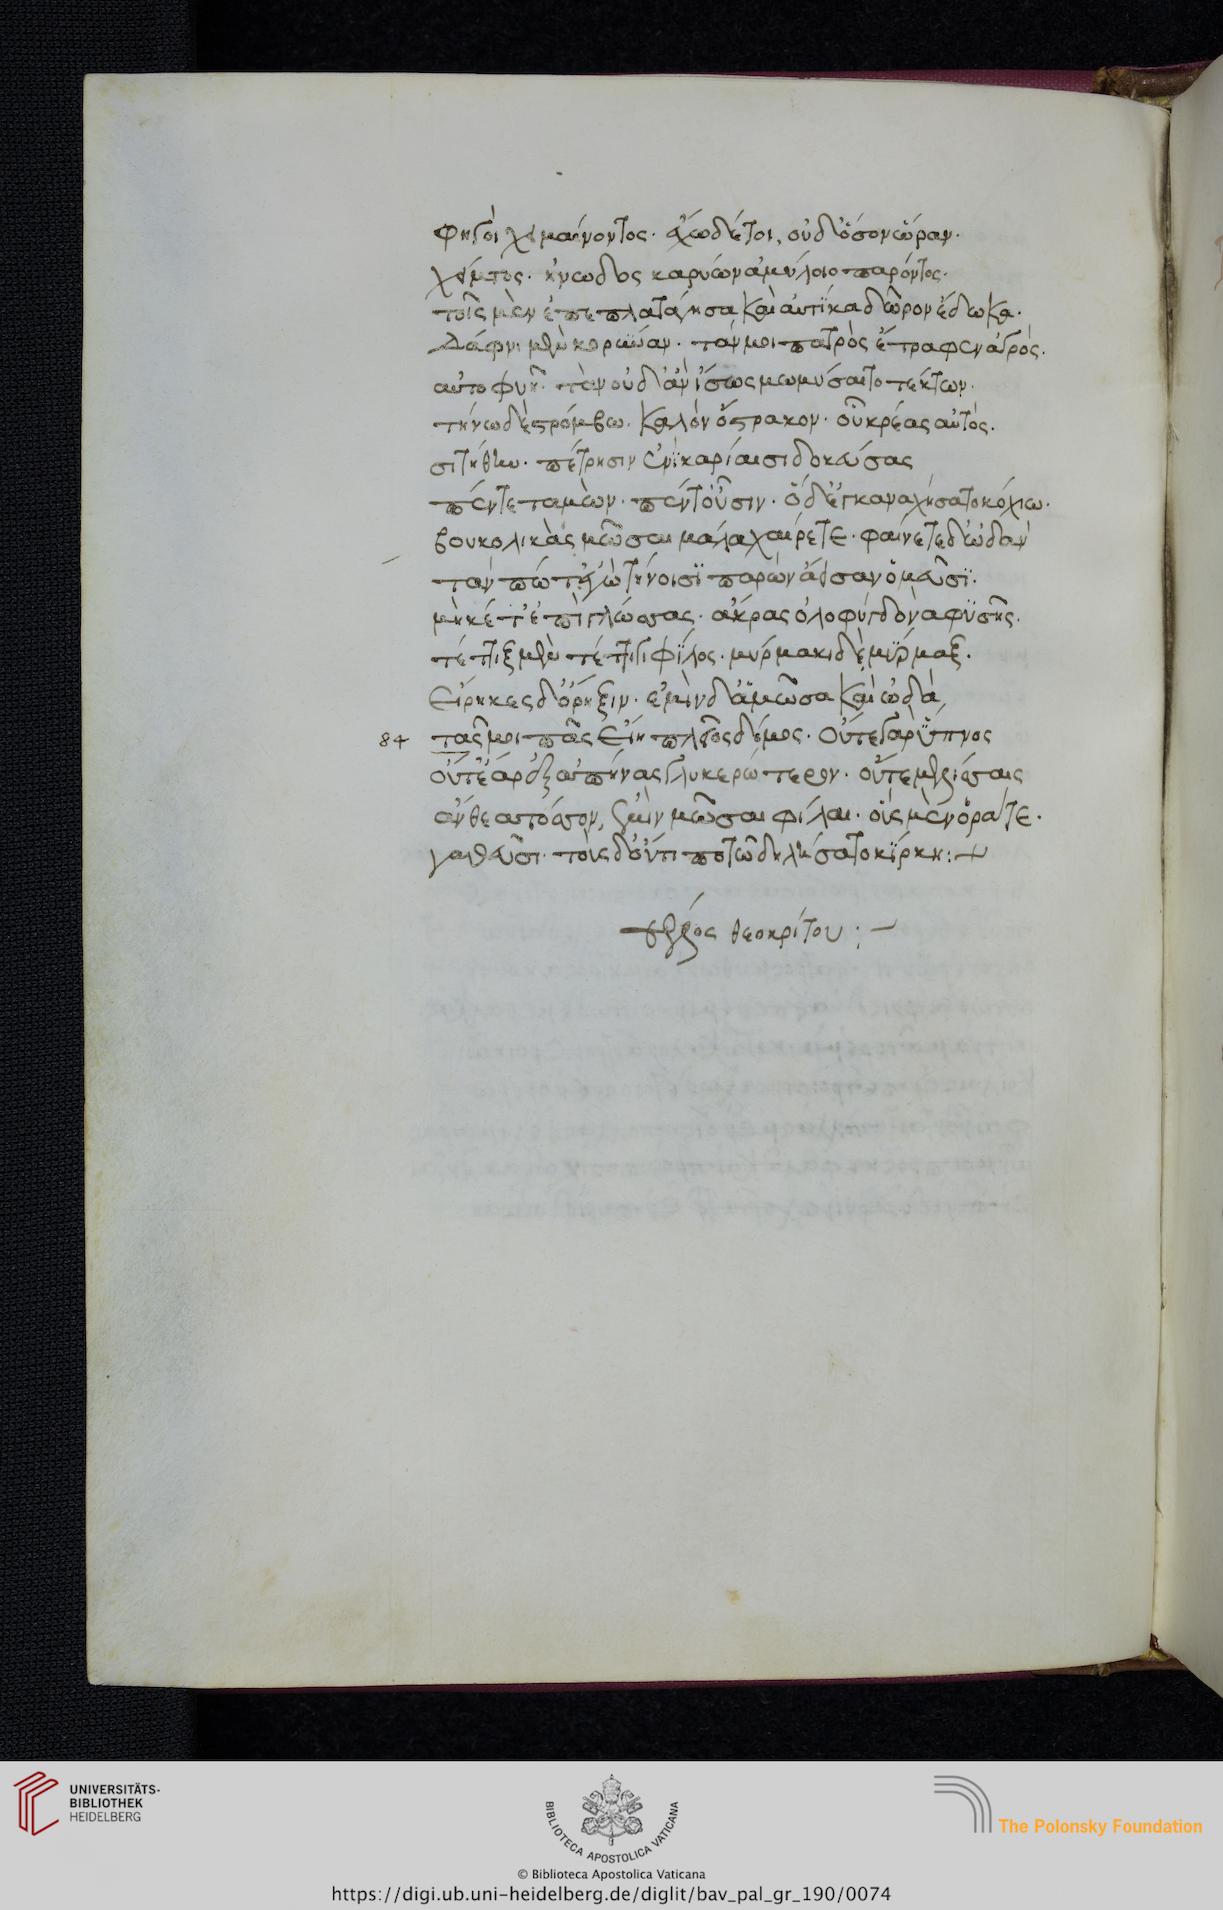 φηγοὶ χειμαίνοντος. ἔχω δέ τοι, οὐδ' ὅσον ὥραν.
χείματος. ἢ νωδὸς καρύων ἀμύλοιο παρόντος.
τοῖς μὲν ἐπεπλατάγησα καὶ αὐτίκα δῶρον ἔδωκα.
Δάφνι μὲν κορύναν. τάν μοι πατρὸς ἔτραφεν ἀγρός.
αὐτοφυῆ. τὰν οὐδ' ἂν ἴσως μωμήσαιτο τέκτων.
τήνω δὲ στρόμβω. καλὸν ὄστρακον. οὗ κρέας αὐτὸς.
σιτήθην. πέτρησιν ἐνϊκαρίαισι δοκεύσας
πέντε ταμὼν. πέντ' οὖσιν. ὅ δ' ἐγκαναχήσατο κόχλω.
βουκολικὰς μῶσαι μάλα χαίρετε. φαίνετε δ' ὠδὰν
τάν πώ τ' ἐγὼ τήνοισϊ παρὼν ἄεισα νομεῦσϊ.
μηκέτ' ἐπὶ γλώσσας. ἄκρας ὀλοφυγδόνα φϋσῃς.
τέττιξ μὲν τέττιγι φϊλος. μύρμακι δὲ μϋρμαξ.
Εἴρηκες δ' ὄρηξιν. ἐμὶν δ' ἁ μῶσα καὶ ὠδὰ,
84 τᾶς μοι πᾶς Εἴη πλεῖος δόμος. οὔτε γὰρ ὕπνος
οὔτ' ἔαρ ἐξαπίνας γλυκερώτερον. οὔτε μελίσσαις
ἄνθεα τόσσον, ἐμὶν μῶσαι φίλαι. οὓς μὲν ὁρᾶτε.
γαθεῦσι. τοὺς δ' οὔτι ποτῶ δηλήσατο κίρκη: +
τέλος θεοκρίτου : —
UNIVERSITÄTS-
BIBLIOTHEK
HEIDELBERG
BIBLIOTECA APOSTOLICA VATICANA
The Polonsky Foundation
© Biblioteca Apostolica Vaticana
https://digi.ub.uni-heidelberg.de/diglit/bav_pal_gr_190/0074